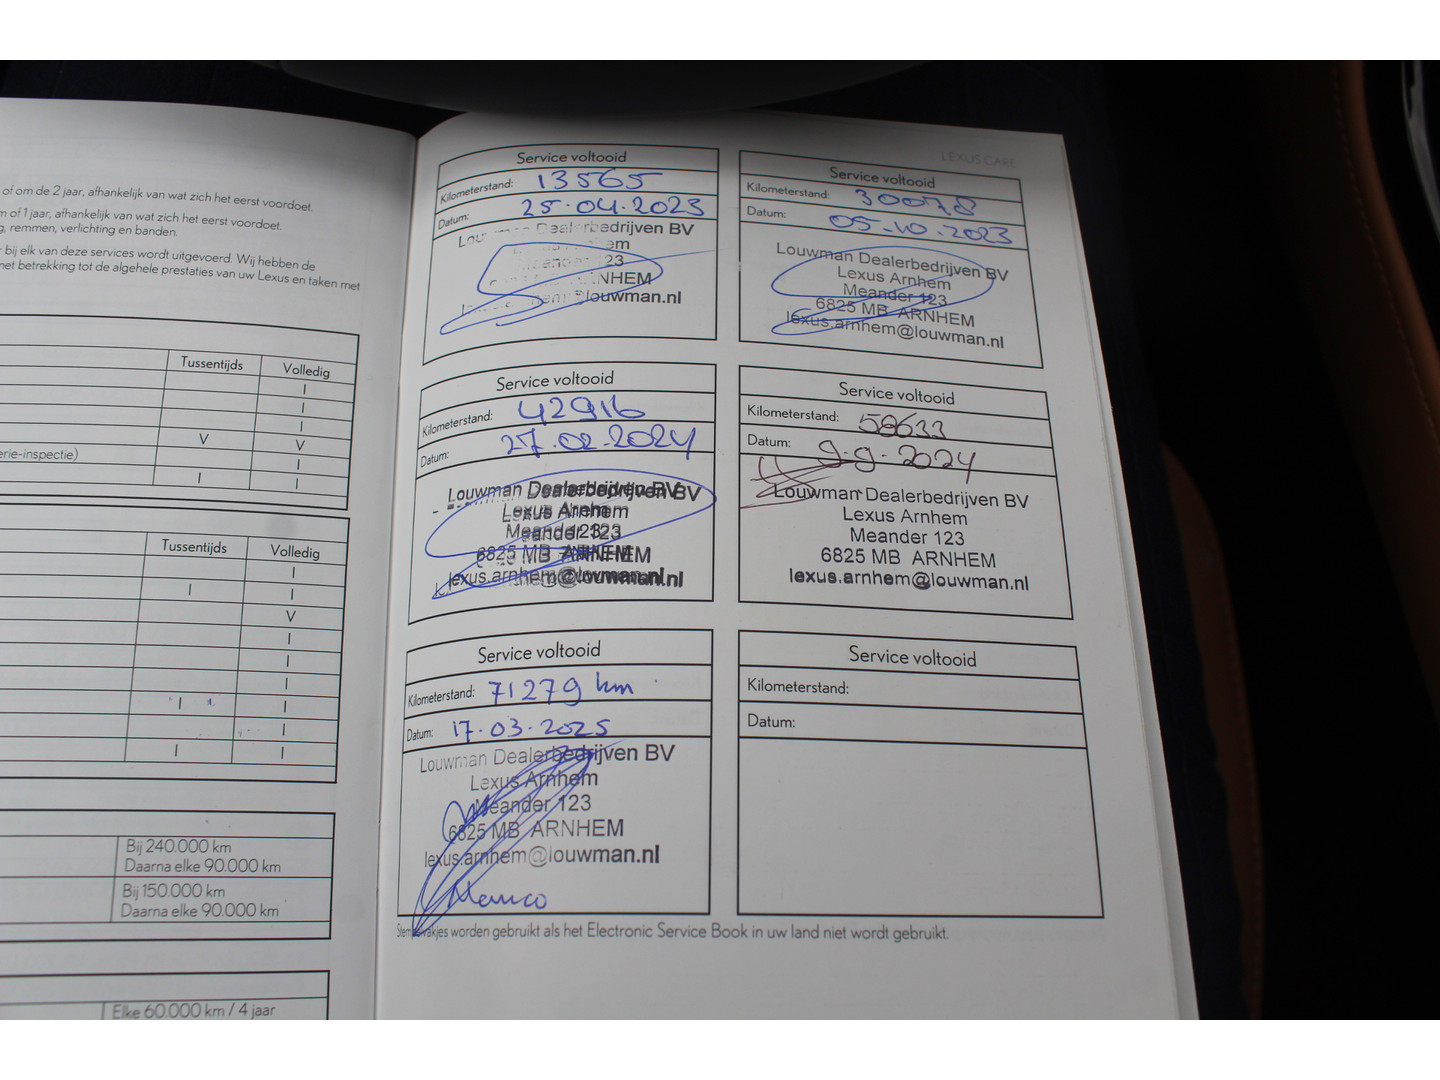 of om de 2 jaar, afhankelijk van wat zich het eerst voordoet.
m of 1 jaar, afhankelijk van wat zich het eerst voordoet.
g, remmen, verlichting en banden.
bij elk van deze services wordt uitgevoerd. Wij hebben de
met betrekking tot de algehele prestaties van uw Lexus en taken met
Tussentijds Volledig
I
I
I
V V
erie-inspectie) I
I I
Tussentijds Volledig
I
I I
V
I
I
I
I I
I
I I
Bij 240.000 km
Daarna elke 90.000 km
Bij 150.000 km
Daarna elke 90.000 km
Elke 60.000 km / 4 jaar
LEXUS CARE
Service voltooid
Kilometerstand: 13565
Datum: 25.04.2023
Louwman Dealerbedrijven BV
Meander 123
ARNHEM
@louwman.nl
Service voltooid
Kilometerstand: 30078
Datum: 05.10.2023
Louwman Dealerbedrijven BV
Lexus Arnhem
Meander 123
6825 MB ARNHEM
lexus.arnhem@louwman.nl
Service voltooid
Kilometerstand: 42916
Datum: 27.02.2024
Louwman Dealerbedrijven BV
Lexus Arnhem
Meander 123
6825 MB ARNHEM
lexus.arnhem@louwman.nl
Service voltooid
Kilometerstand: 58633
Datum: 9-9-2024
Louwman Dealerbedrijven BV
Lexus Arnhem
Meander 123
6825 MB ARNHEM
lexus.arnhem@louwman.nl
Service voltooid
Kilometerstand: 71279 km
Datum: 17.03.2025
Louwman Dealerbedrijven BV
Lexus Arnhem
Meander 123
6825 MB ARNHEM
lexus.arnhem@louwman.nl
Service voltooid
Kilometerstand:
Datum:
worden gebruikt als het Electronic Service Book in uw land niet wordt gebruikt.